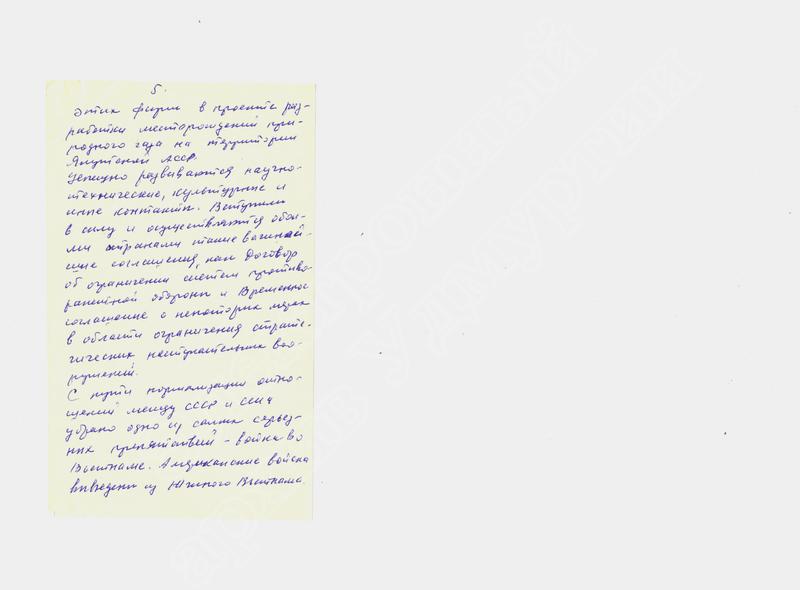 5.
этих фирм в проекте раз-
работки месторождений при-
родного газа на территории
Якутской АССР.
Успешно развиваются научно-
технические, культурные и
иные контакты. Вступили
в силу и осуществляются обои-
ми странами такие важней-
шие соглашения, как Договор
об ограничении систем противо-
ракетной обороны и Временное
соглашение о некоторых мерах
в области ограничения страте-
гических наступательных воо-
ружений.
С пути нормализации отно-
шений между СССР и США
убрано одно из самых серьез-
ных препятствий - война во
Вьетнаме. Американские войска
выведены из Южного Вьетнама.